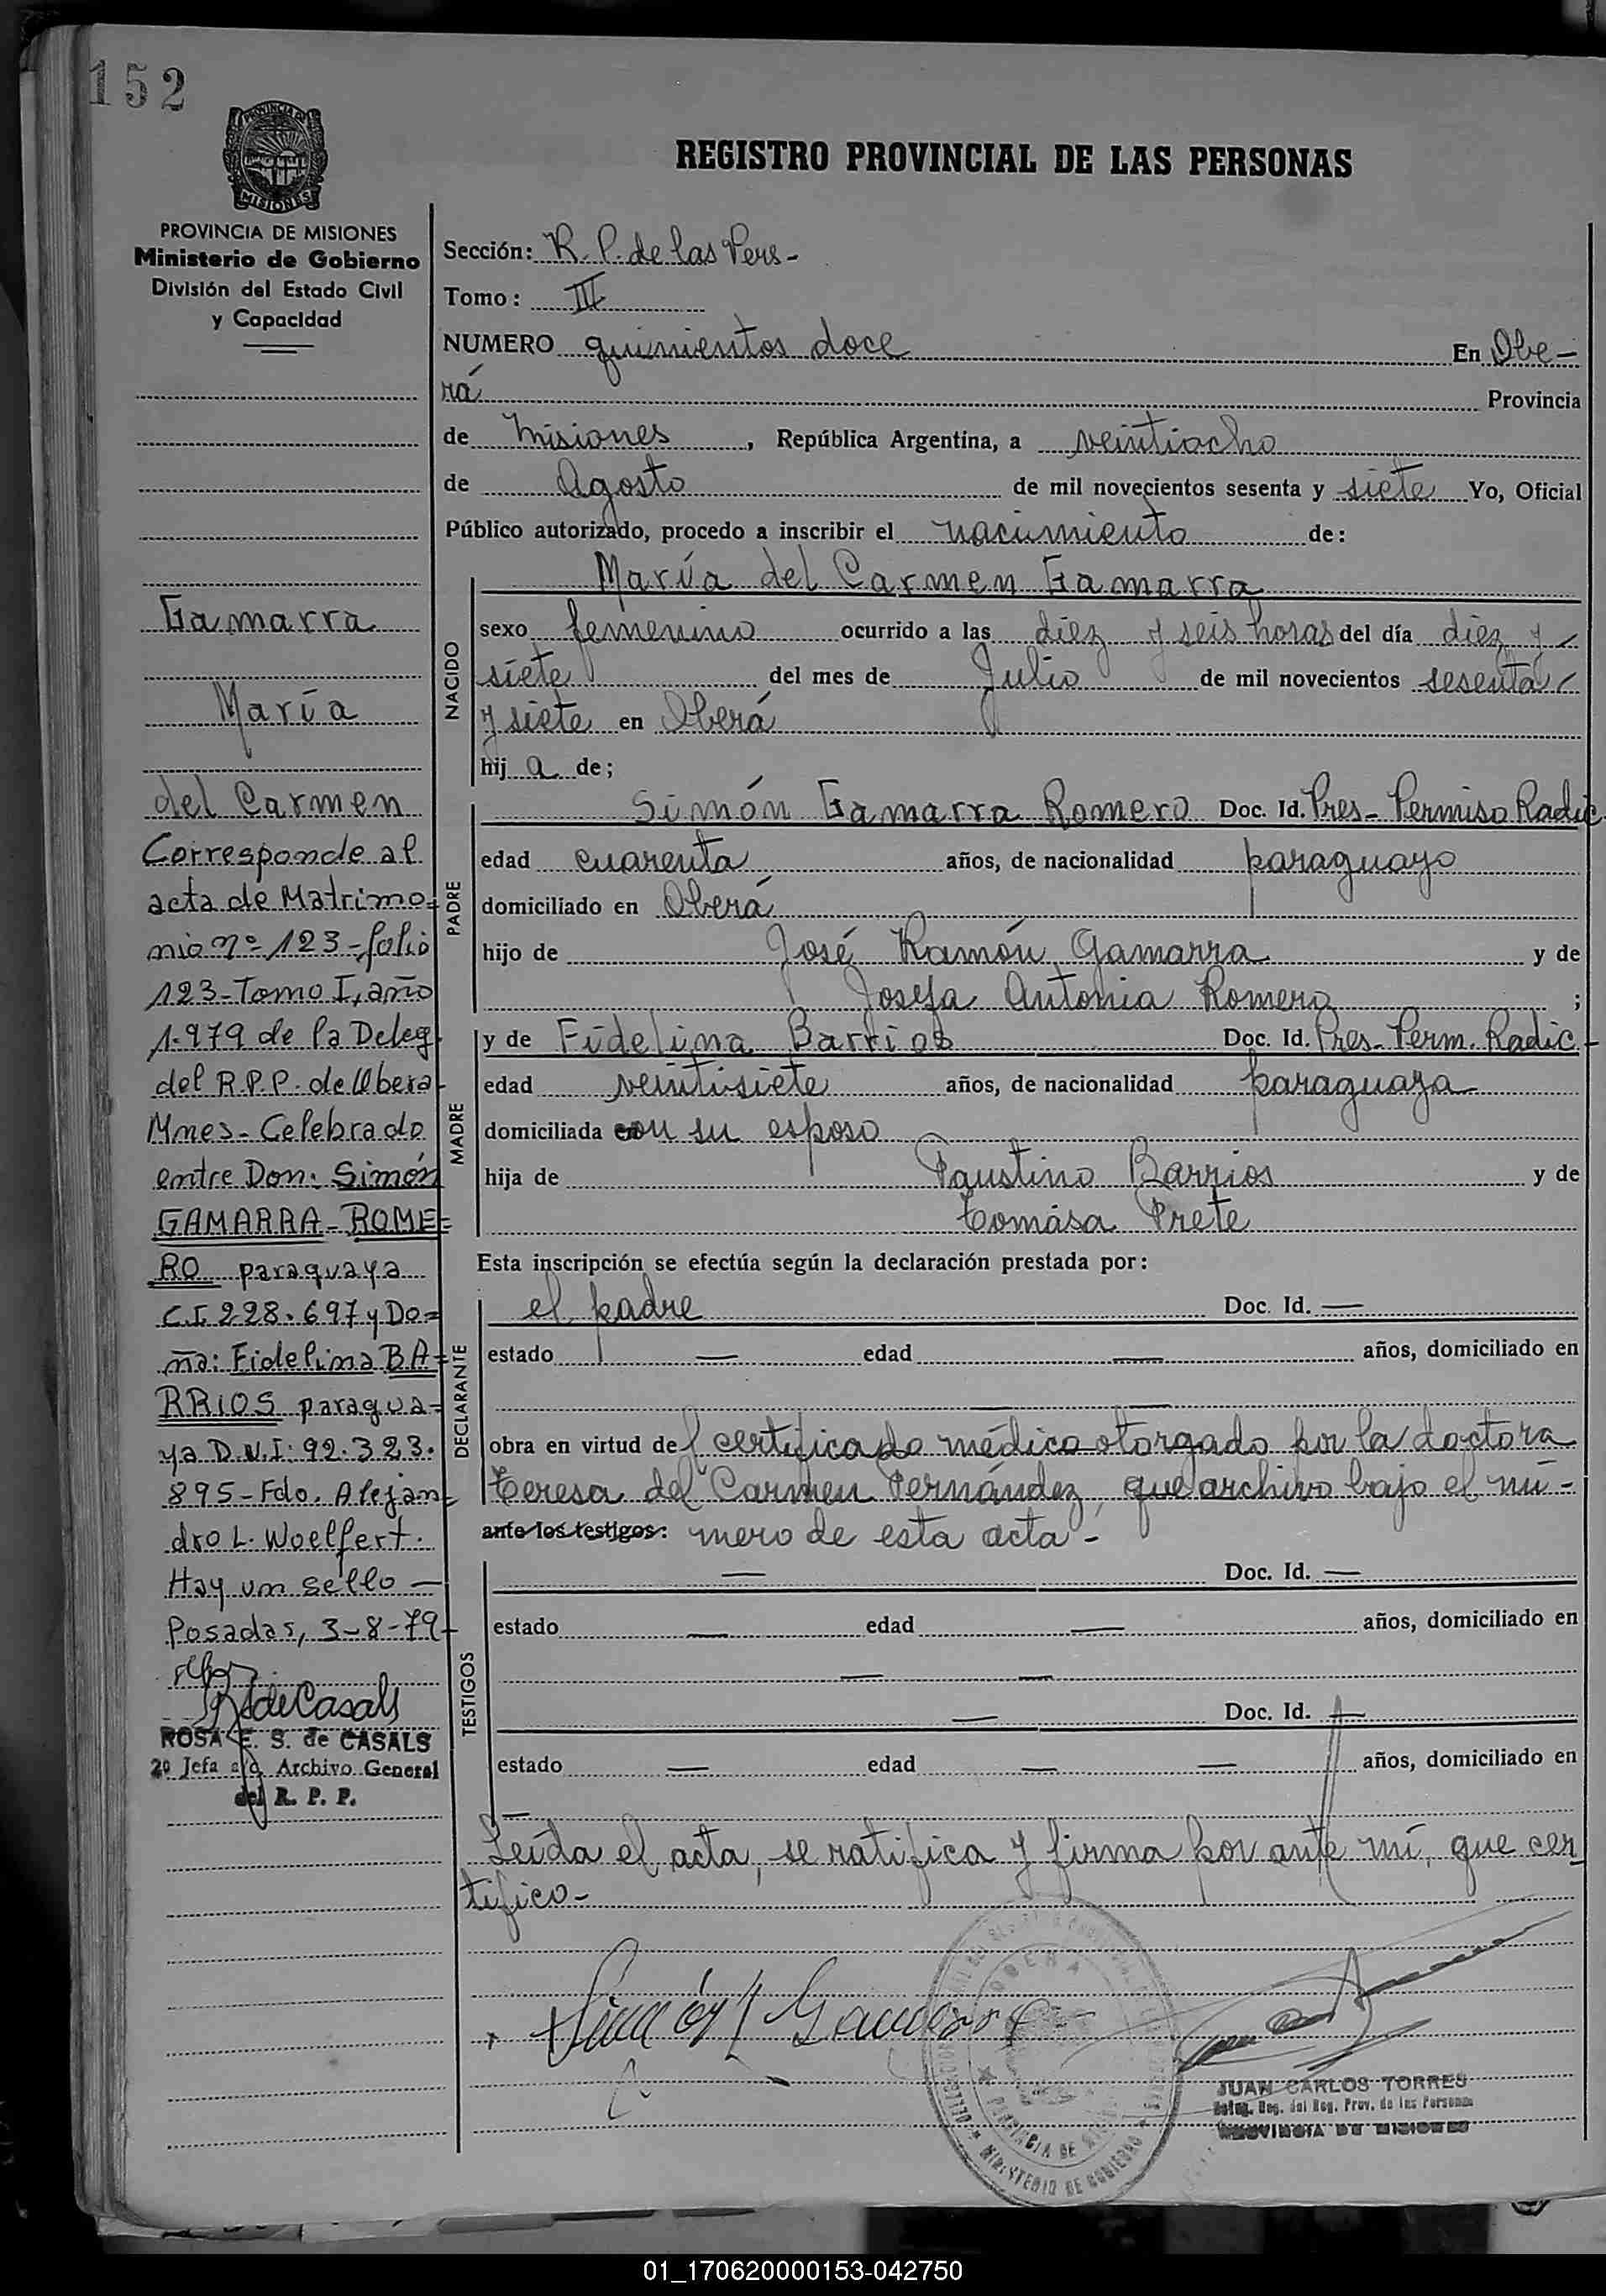 152
PROVINCIA DE
MISIONES
PROVINCIA DE MISIONES
Ministerio de Gobierno
División del Estado Civil
y Capacidad
Gamarra
María
del Carmen
Corresponde al
acta de Matrimo-
nio nº 123-folio
123-Tomo I, año
1.979 de la Deleg.
del R.P.P. de Obera-
Mnes- Celebrado
entre Don: Simón
GAMARRA-ROME=
RO paraguaya
C.I. 228.697 y Do=
ña: Fidelina BA=
RRIOS paragua=
ya D.N.I: 92.323.
895-Fdo. Alejan-
dro L. Woelfert.
Hay un sello —
Posadas, 3-8-79-
RdeCasals
ROSA E. S. de CASALS
2º Jefa a/c. Archivo General
del R. P. P.
REGISTRO PROVINCIAL DE LAS PERSONAS
Sección: R. P. de las Pers-
Tomo: III
NUMERO quinientos doce En Obe-
rá Provincia
de Misiones, República Argentina, a veintiocho
de Agosto de mil novecientos sesenta y siete Yo, Oficial
Público autorizado, procedo a inscribir el nacimiento de:
María del Carmen Gamarra
NACIDO
sexo femenino ocurrido a las diez y seis horas del día diez y
siete del mes de Julio de mil novecientos sesenta
y siete en Oberá
hija de;
PADRE
Simón Gamarra Romero Doc. Id. Pres- Permiso Radic.
edad cuarenta años, de nacionalidad paraguayo
domiciliado en Oberá
hijo de José Ramón Gamarra y de
Josefa Antonia Romero ;
MADRE
y de Fidelina Barrios Doc. Id. Pres- Perm. Radic-
edad veintisiete años, de nacionalidad paraguaya
domiciliada con su esposo
hija de Faustino Barrios y de
Tomása Prete
Esta inscripción se efectúa según la declaración prestada por:
DECLARANTE
el padre Doc. Id. —
estado — edad — años, domiciliado en
— —
obra en virtud del certificado médico otorgado por la doctora
Teresa del Carmen Fernández, que archivo bajo el nú-
ante los testigos: mero de esta acta-
TESTIGOS
— Doc. Id. —
estado — edad — años, domiciliado en
— —
— Doc. Id. —
estado — edad — — años, domiciliado en
—
Leída el acta, se ratifica y firma por ante mí, que cer-
tifico-
Simón Gamarra
OBERA
MINISTERIO DE GOBIERNO
JUAN CARLOS TORRES
Reg. Prov. de las Personas
PROVINCIA DE MISIONES
01_170620000153-042750